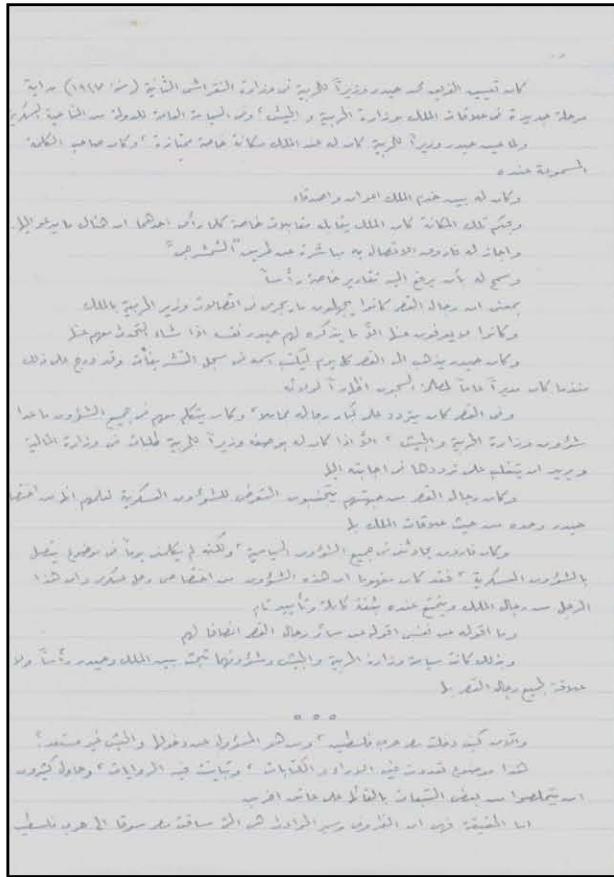 كان تعيين الفريق محمد حيدر وزيراً للحربية فى وزارة النقراشى الثانية (سنة ١٩٤٧) بداية
مرحلة جديدة فى علاقات الملك بوزارة الحربية و الجيش، وفى السياسة العامة للدولة من الناحية العسكرية
ولما عين حيدر وزيراً للحربية كان له عند الملك مكانة خاصة ممتازة، وكان صاحب الكلمة
المسموعة عنده
وكان له بين خدم الملك اعوان واصدقاء
وبحكم تلك المكانة كان الملك يقابله مقابلات خاصة كلما رأى احدهما ان هناك ما يدعو اليها
واجاز له فاروق الاتصال به مباشرة عن طريق "الشمشرجى"
وسمح له بأن يرفع اليه تقارير خاصة رأساً
بمعنى ان رجال القصر كانوا يجهلون ما يجرى فى اتصالات وزير الحربية بالملك
وكانوا لا يعرفون عنها الا ما يذكره لهم حيدر نفسه اذا شاء التحدث معهم عنها
وكان حيدر يذهب الى القصر كل يوم ليكتب اسمه فى سجل التشريفات وقد درج على ذلك
منذما كان مديراً عاماً لمصلحة السجون اظهاراً لولائه
وفى القصر كان يتردد على كبار رجاله مجاملا، وكان يتكلم معهم فى جميع الشؤون ما عدا
شؤون وزارة الحربية والجيش، الا اذا كان له بوصفه وزيراً للحربية طلبات فى وزارة المالية
ويريد ان يتغلب على ترددها فى اجابته اليها
وكان رجال القصر من جهتهم يتجنبون التعرض للشؤون العسكرية لعلمهم انها من اختصاص
حيدر وحده من حيث علاقات الملك بها
وكان فاروق يحادثنى فى جميع الشؤون السياسية، ولكنه لم يكلمنى يوماً فى موضوع يتصل
بالشؤون العسكرية، فقد كان مفهوما ان هذه الشؤون من اختصاص رجل عسكرى وان هذا
الرجل من رجال الملك ويتمتع عنده بثقة كاملة وتأييد تام
وما اقوله عن نفسى اقوله عن سائر رجال القصر انصافا لهم
وبذلك كانت سياسة وزارة الحربية والجيش وشؤونهما تبحث بين الملك وحيدر رأساً ولا
علاقة لجميع رجال القصر بها
والآن كيف دخلت مصر حرب فلسطين، ومن هو المسؤول عن دخولها والجيش غير مستعد؟
هذا موضوع تعددت فيه الآراء و الكتابات، وتباينت فيه الروايات، وحاول كثيرون
ان يتملصوا من بعض التبعات بالقائها على عاتق آخرين
اما الحقيقة فهى ان الظروف وسير الحوادث هى التى ساقت مصر سوقا الى حرب فلسطين